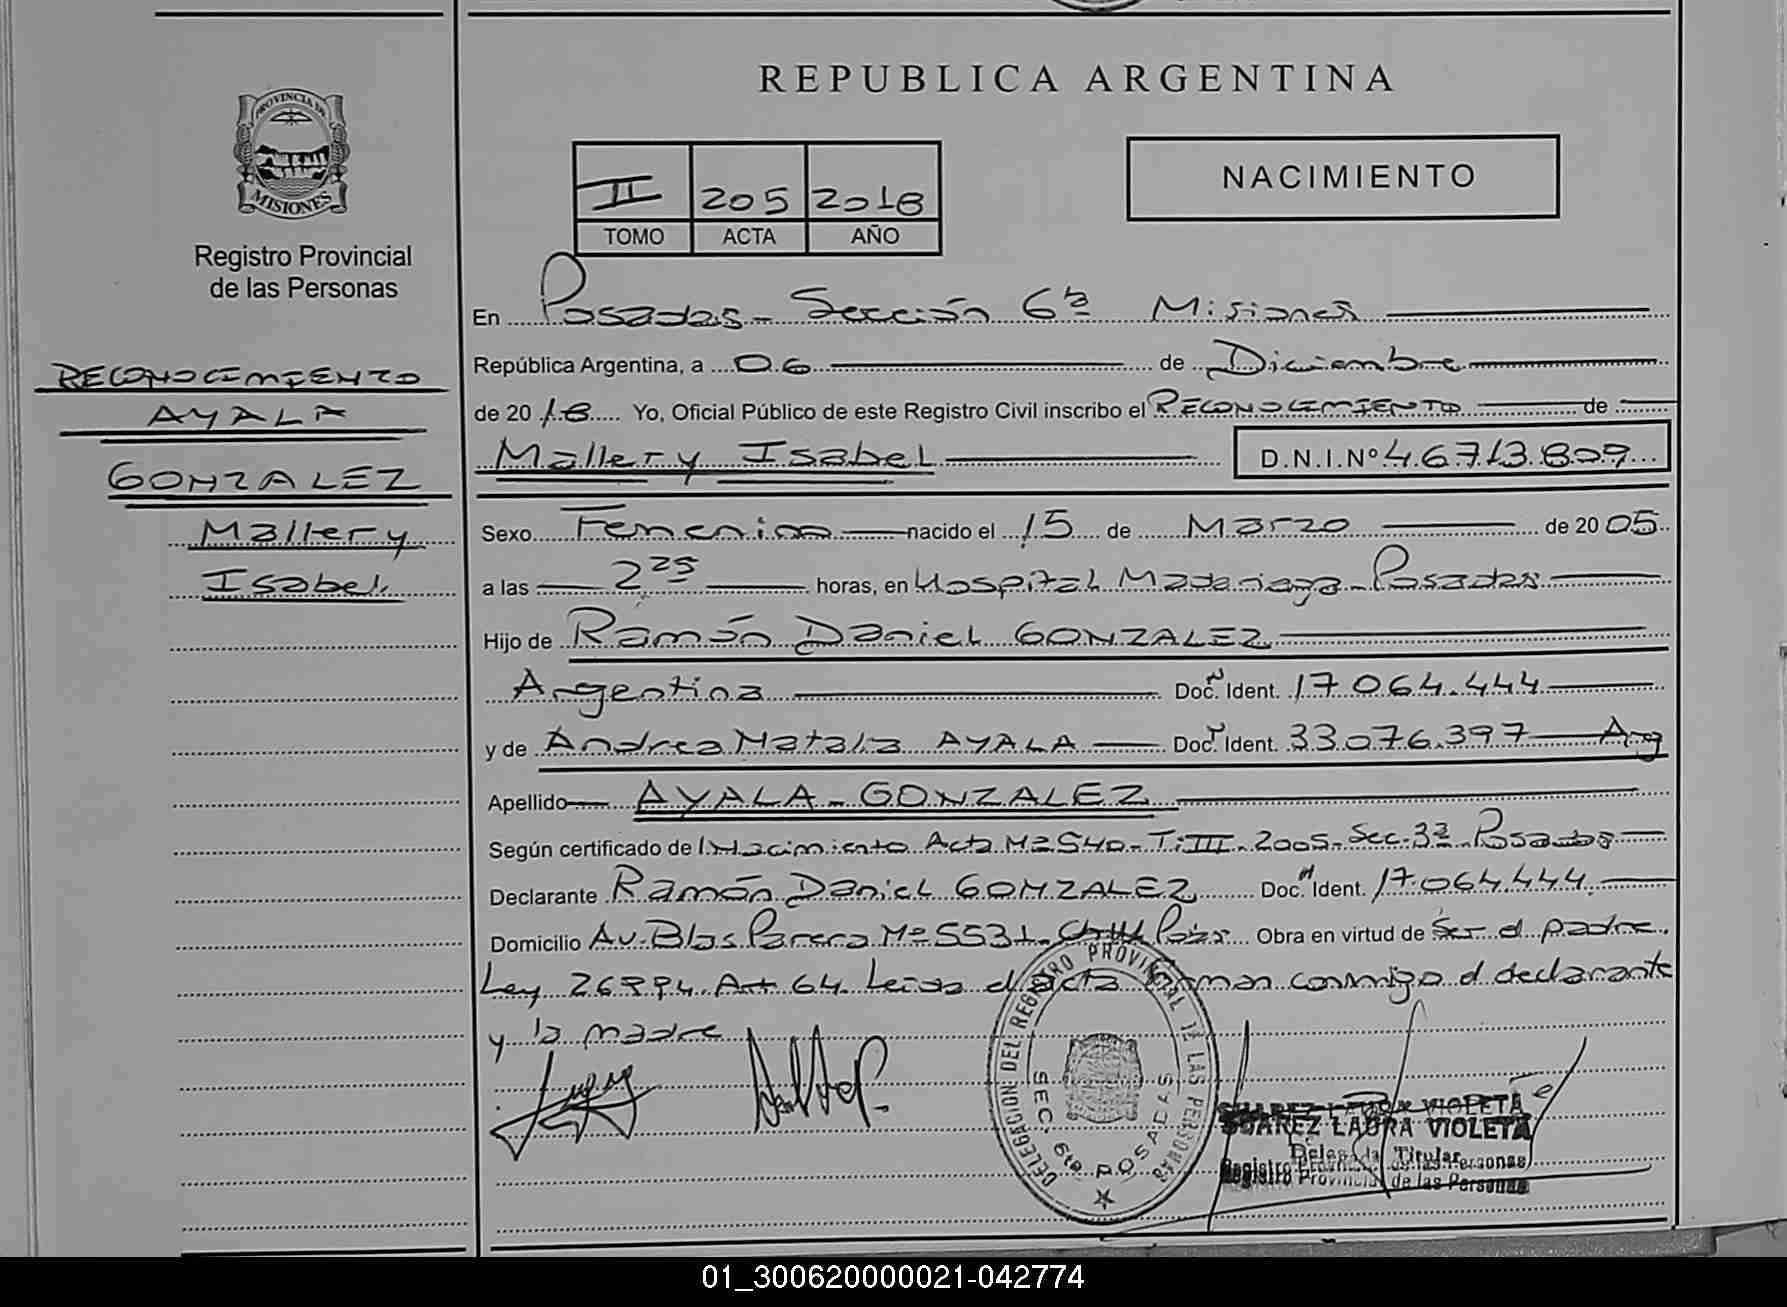 PROVINCIA DE
MISIONES
Registro Provincial
de las Personas
RECONOCIMIENTO
AYALA
GONZALEZ
Mallery
Isabel
REPUBLICA ARGENTINA
II 205 2018
TOMO ACTA AÑO
NACIMIENTO
En Posadas - Sección 6ta Misiones
República Argentina, a 06 de Diciembre
de 2018 Yo, Oficial Público de este Registro Civil inscribo el RECONOCIMIENTO de
Mallery Isabel D.N.I.Nº 46713.809
Sexo Femenino nacido el 15 de Marzo de 2005
a las 2 25 horas, en Hospital Madariaga - Posadas
Hijo de Ramón Daniel GONZALEZ
Argentina Doc. Ident. 17 064.444
y de Andrea Natalia AYALA Doc. Ident. 33.076.397 Arg
Apellido AYALA - GONZALEZ
Según certificado de Nacimiento Acta Nº 540 - T: III - 2005 - Sec. 3ª - Posadas
Declarante Ramón Daniel GONZALEZ Doc. Ident. 17.064.444
Domicilio Av. Blas Parera Nº 5531 Obra en virtud de Ser el padre.
Ley 26994 Art 64. Leida el acta firman conmigo el declarante
y la madre
DELEGACION DEL REGISTRO PROVINCIAL DE LAS PERSONAS
SEC. 6ta. POSADAS
SUAREZ LAURA VIOLETA
SUAREZ LAURA VIOLETA
Titular
Registro Provincial de las Personas
Registro Provincial de las Personas
01_300620000021-042774